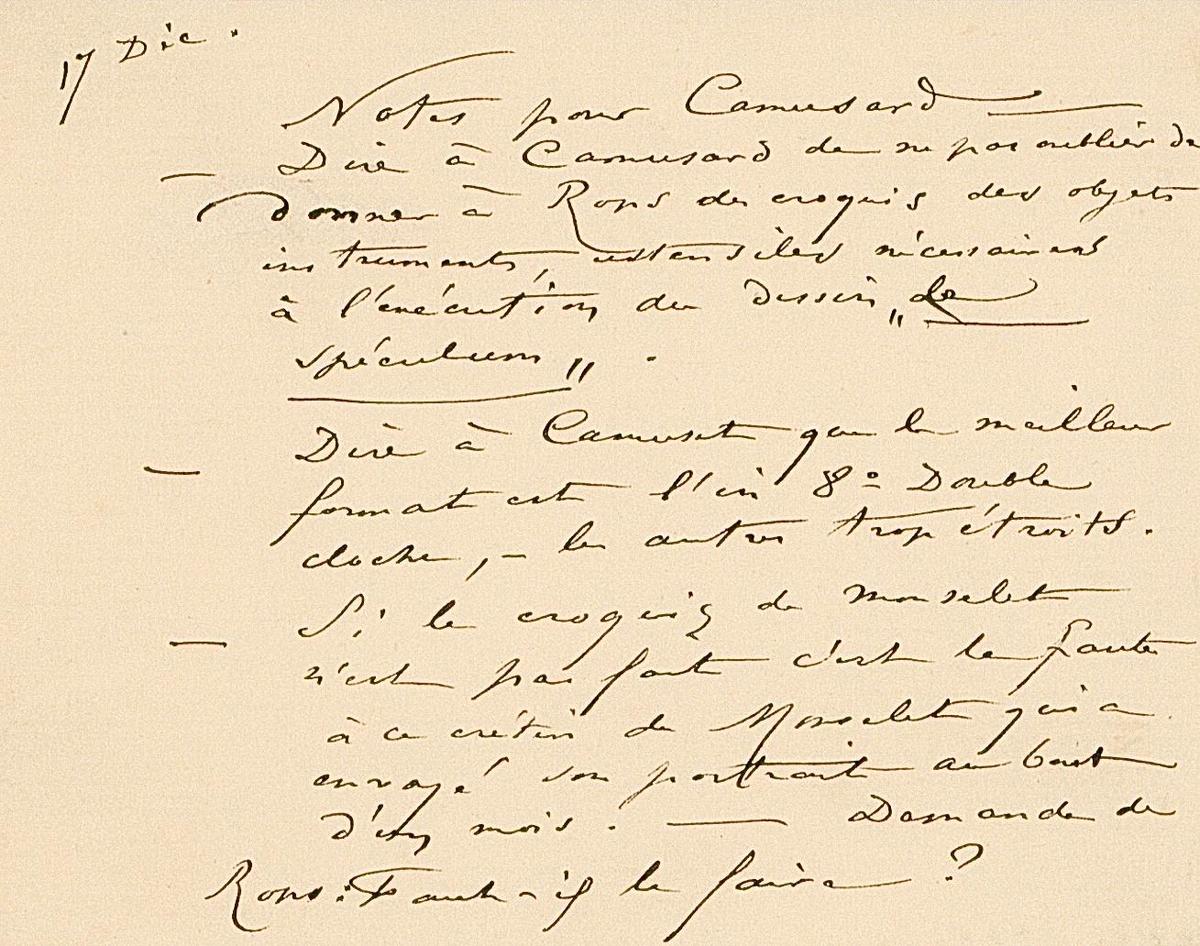 17 Dec.
Notes pour Camusard —
— Dire à Camusard de ne pas oublier de
donner à Rops des croquis des objets
instruments, ustensiles nécessaires
à l'exécution du dessin „Le
spéculum„ .
— Dire à Camuset que le meilleur
format est l'in 8º Double
cloche, – les autres trop étroits.
— Si le croquis de Monselet
n'est pas fait c'est la faute
à ce crétin de Monselet qui a
envoyé son portrait au bout
d'un mois. — Demande de
Rops: Faut-il le faire ?